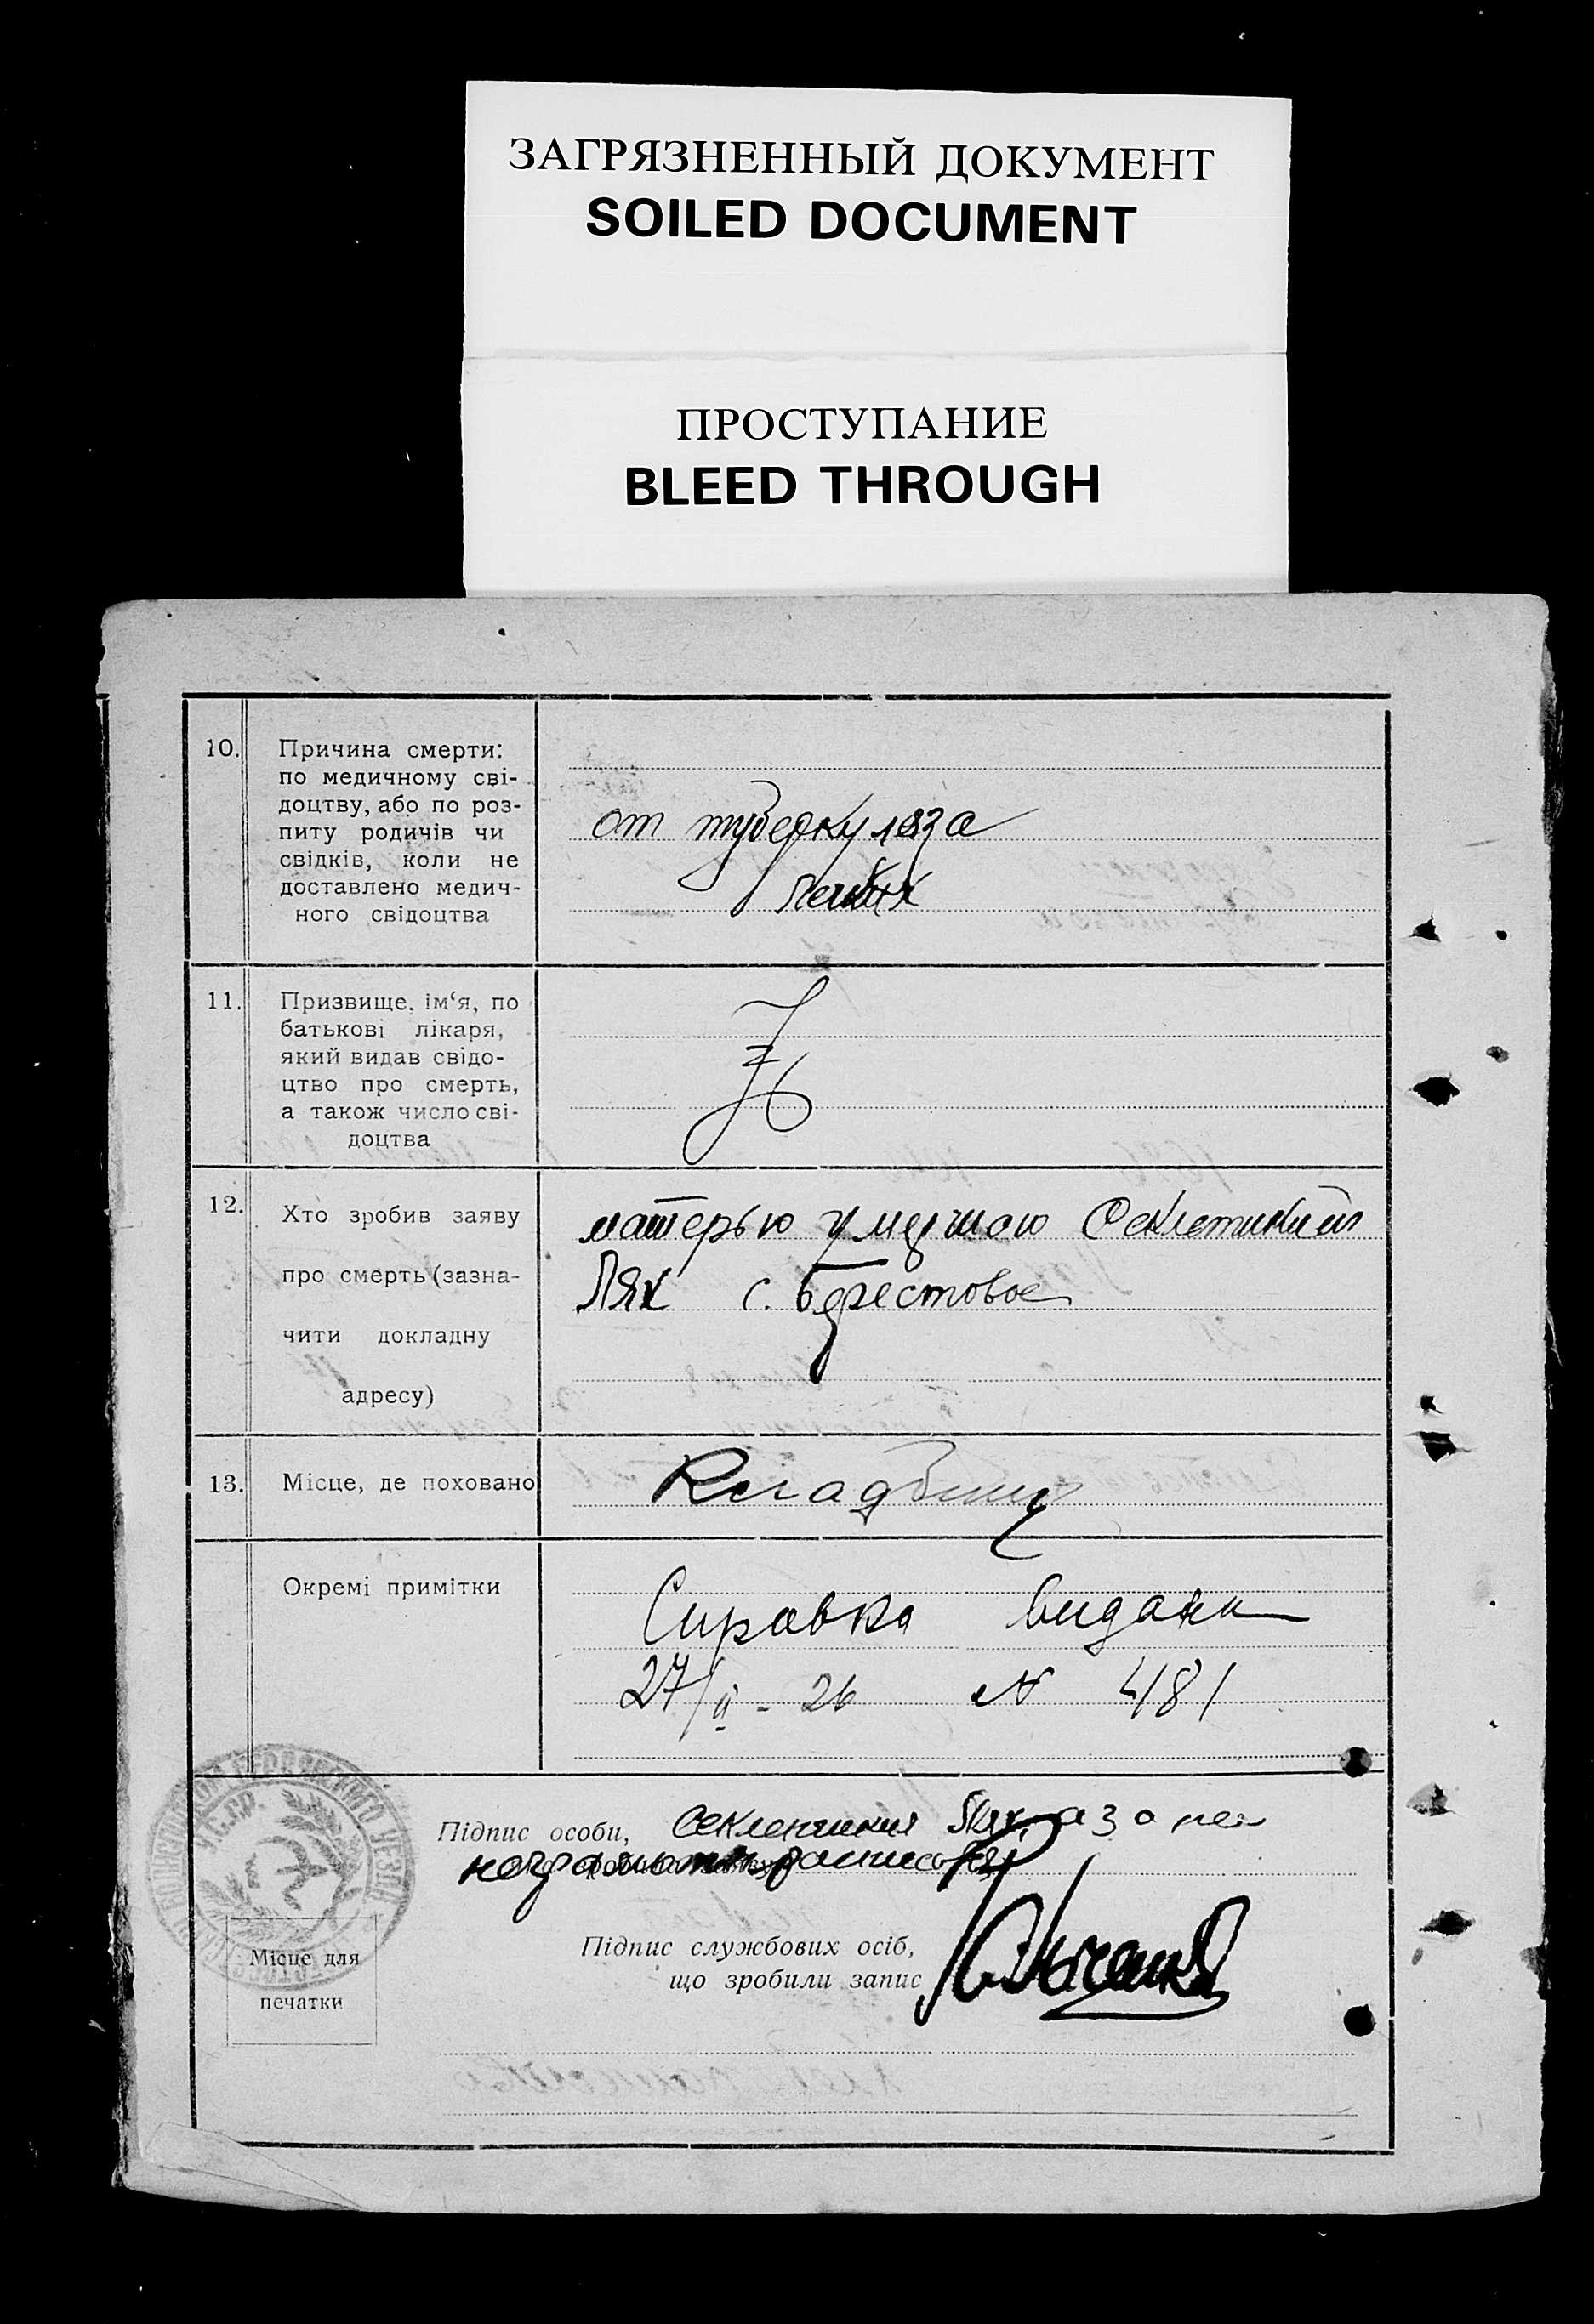 ЗАГРЯЗНЕННЫЙ ДОКУМЕНТ
SOILED DOCUMENT
ПРОСТУПАНИЕ
BLEED THROUGH
10. Причина смерти:
по медичному сві-
доцтву, або по роз-
питу родичів чи
свідків, коли не
доставлено медич-
ного свідоцтва
от туберкулоза
легких
11. Призвище, ім‘я, по
батькові лікаря,
який видав свідо-
цтво про смерть,
а також число сві-
доцтва
12. Хто зробив заяву
про смерть (зазна-
чити докладну
адресу)
матерью умершою
Лях с. Берестовое
13. Місце, де поховано
Кладбищ
Окремі примітки
Справка видана
27/II - 26 № 4181
Підпис особи,
Лях, а за нея
неграмотн росписався
Підпис службових осіб,
що зробили запис
Місце для
печатки
У.С.С.Р.